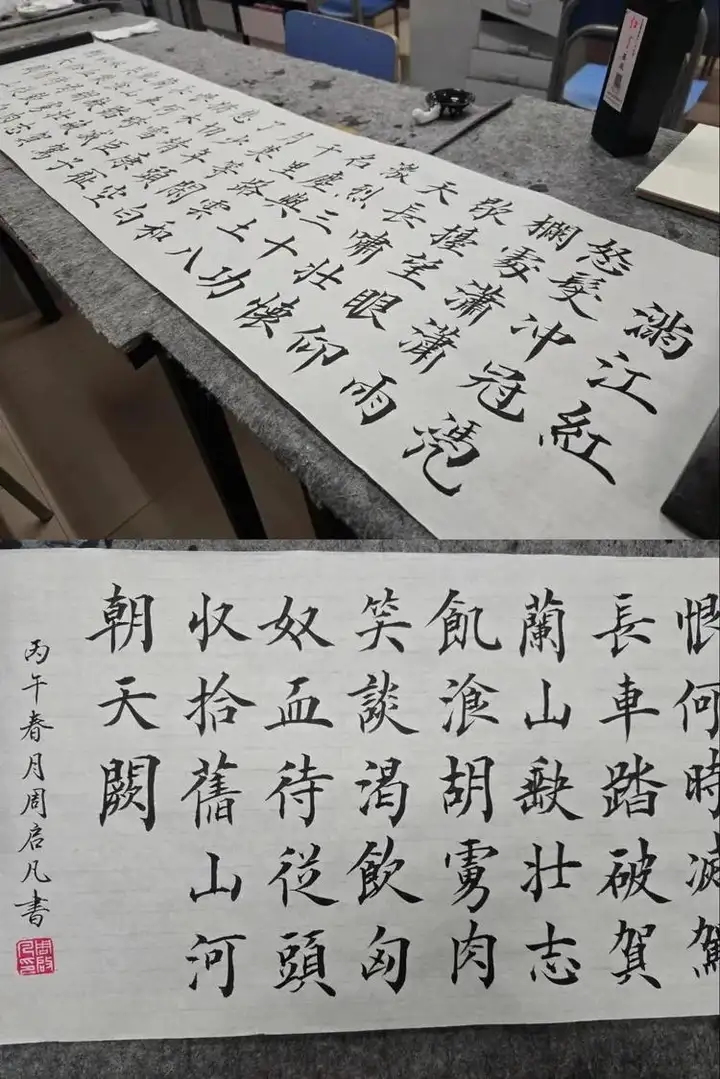 滿江紅
怒髮冲冠凴
欄處瀟瀟雨
歇擡望眼仰
天長嘯壯懷
激烈三十功
名塵與土八
千里路雲和
月莫等閒白
了少年頭空
恨何時滅駕
長車踏破賀
蘭山缺壯志
飢湌胡虜肉
笑談渴飲匈
奴血待從頭
収拾舊山河
朝天闕
丙午春月周启凡書